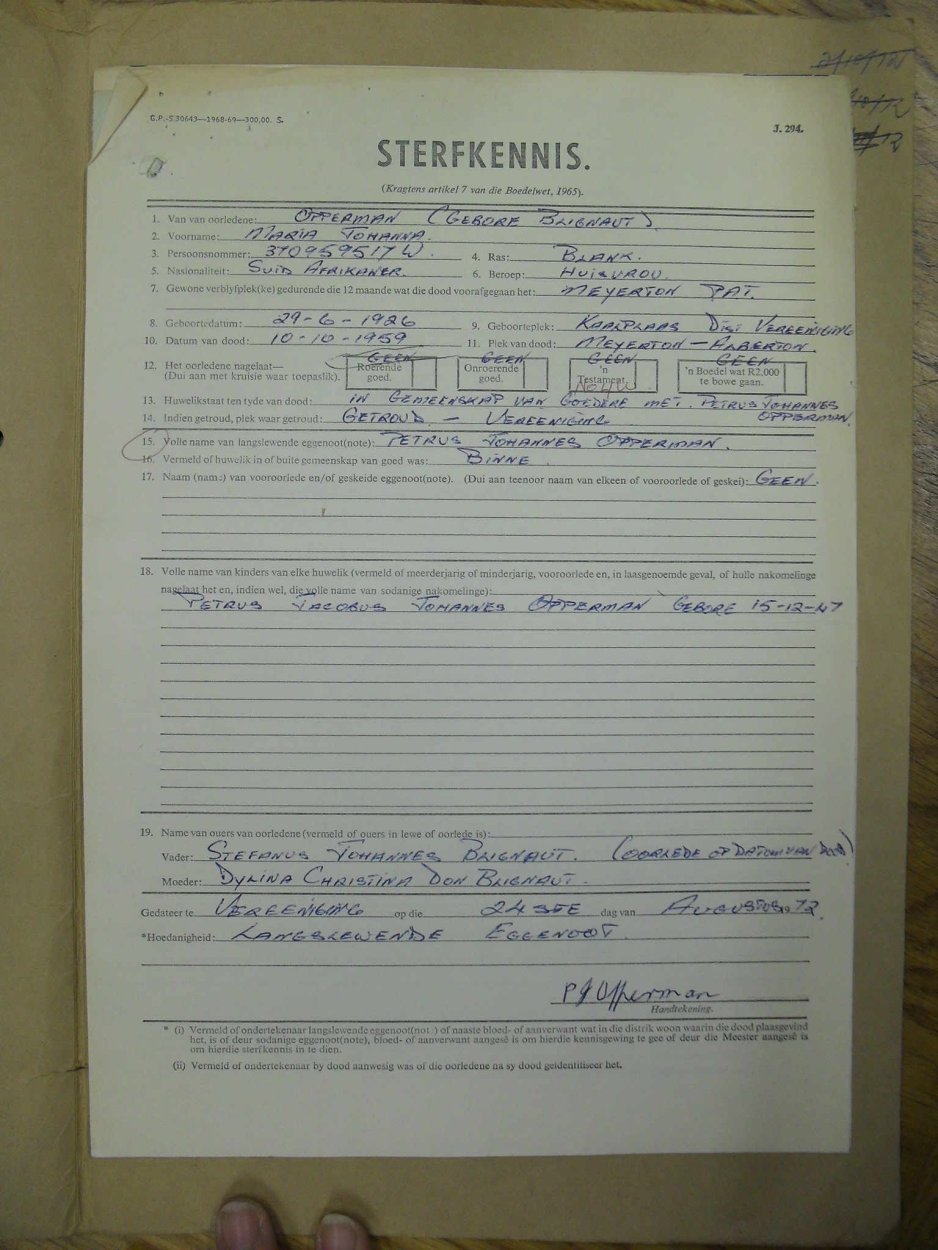 G.P.-S.30643—1968-69—300,00. S.
J. 294.
STERFKENNIS.
(Kragtens artikel 7 van die Boedelwet, 1965).
1. Van van oorledene: OPPERMAN (GEBORE BLIGNAUT)
2. Voorname: MARIA JOHANNA.
3. Persoonsnommer: 370959517 W. 4. Ras: BLANK.
5. Nasionaliteit: SUID AFRIKANER. 6. Beroep: HUISVROU.
7. Gewone verblyfplek(ke) gedurende die 12 maande wat die dood voorafgegaan het: MEYERTON PAT.
8. Geboortedatum: 29-6-1926 9. Geboorteplek: KAALPLAAS DIST VEREENIGING
10. Datum van dood: 10-10-1959 11. Plek van dood: MEYERTON - ALBERTON.
GEEN GEEN GEEN GEEN
12. Het oorledene nagelaat— Roerende goed. Onroerende goed. 'n Testament. 'n Boedel wat R2.000 te bowe gaan.
(Dui aan met kruisie waar toepaslik).
13. Huwelikstaat ten tyde van dood: IN GEMEENSKAP VAN GOEDERE MET. PETRUS JOHANNES
OPPERMAN.
14. Indien getroud, plek waar getroud: GETROUD - VEREENIGING
15. Volle name van langslewende eggenoot(note): PETRUS JOHANNES OPPERMAN.
16. Vermeld of huwelik in of buite gemeenskap van goed was: BINNE.
17. Naam (nam:) van vooroorlede en/of geskeide eggenoot(note). (Dui aan teenoor naam van elkeen of vooroorlede of geskei): GEEN.
18. Volle name van kinders van elke huwelik (vermeld of meerderjarig of minderjarig, vooroorlede en, in laasgenoemde geval, of hulle nakomelinge
nagelaat het en, indien wel, die volle name van sodanige nakomelinge):
PETRUS JACOBUS JOHANNES OPPERMAN GEBORE 15-12-47
19. Name van ouers van oorledene (vermeld of ouers in lewe of oorlede is):
Vader: STEFANUS JOHANNES BLIGNAUT. (OORLEDE OP DATUM VAN DOOD)
Moeder: DYLINA CHRISTINA DON BLIGNAUT.
Gedateer te VEREENIGING op die 24STE dag van AUGUSTUS 1972.
*Hoedanigheid: LANGSLEWENDE EGGENOOT.
P J Opperman
Handtekening.
* (i) Vermeld of ondertekenaar langslewende eggenoot(not ) of naaste bloed- of aanverwant wat in die distrik woon waarin die dood plaasgevind
het, is of deur sodanige eggenoot(note), bloed- of aanverwant aangesê is om hierdie kennisgewing te gee of deur die Meester aangesê is
om hierdie sterfkennis in te dien.
(ii) Vermeld of ondertekenaar by dood aanwesig was of die oorledene na sy dood geïdentifiseer het.